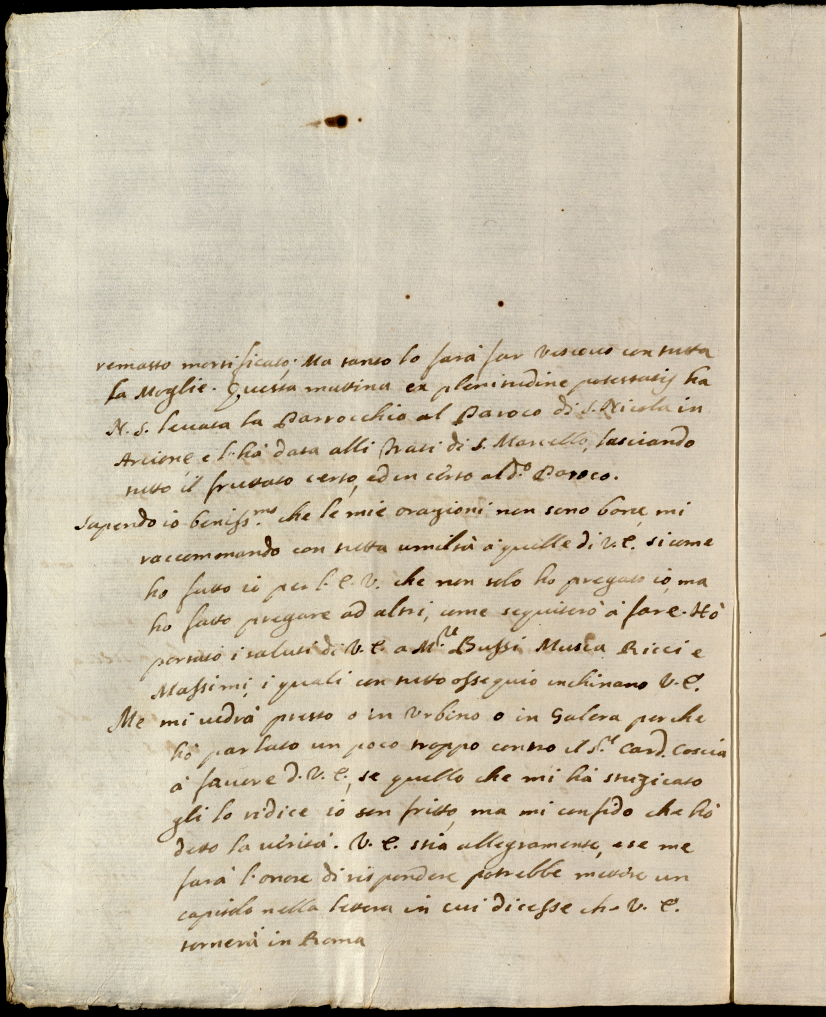 remasto mortificato; Ma tanto lo farà far Vescovo con tutta
la Moglie. Questa mattina ex plenitudine potestatis ha
N. S. levata la Parrocchia al Paroco di S. Nicola in
Arcione e l'hà data alli Frati di S. Marcello, lasciando
tutto il fruttato certo, ed incerto al d.º Paroco.
Sapendo io beniss.mo che le mie orazioni non sono bone, mi
raccommando con tutta umiltà à quelle di V. E. si come
ho fatto io per l'E. V. che non solo ho pregato io, ma
ho fatto pregare ad altri, come seguiterò à fare. Hò
portato i saluti di V. E. a M.re Bussi Musca Ricci e
Massimi, i quali con tutto ossequio inchinano V. E.
Me mi vedrà presto o in Urbino o in Galera perche
hò parlato un poco troppo contro il S.r Card. Coscia
à favore d. V. E., se quello che mi hà stuzicato
gli lo ridice io son fritto, ma mi confido che hò
detto la verità. V. E. stia allegramente, e se me
farà l'onore di rispondere potrebbe mettere un
capitolo nella lettera in cui dicesse che V. E.
tornerà in Roma